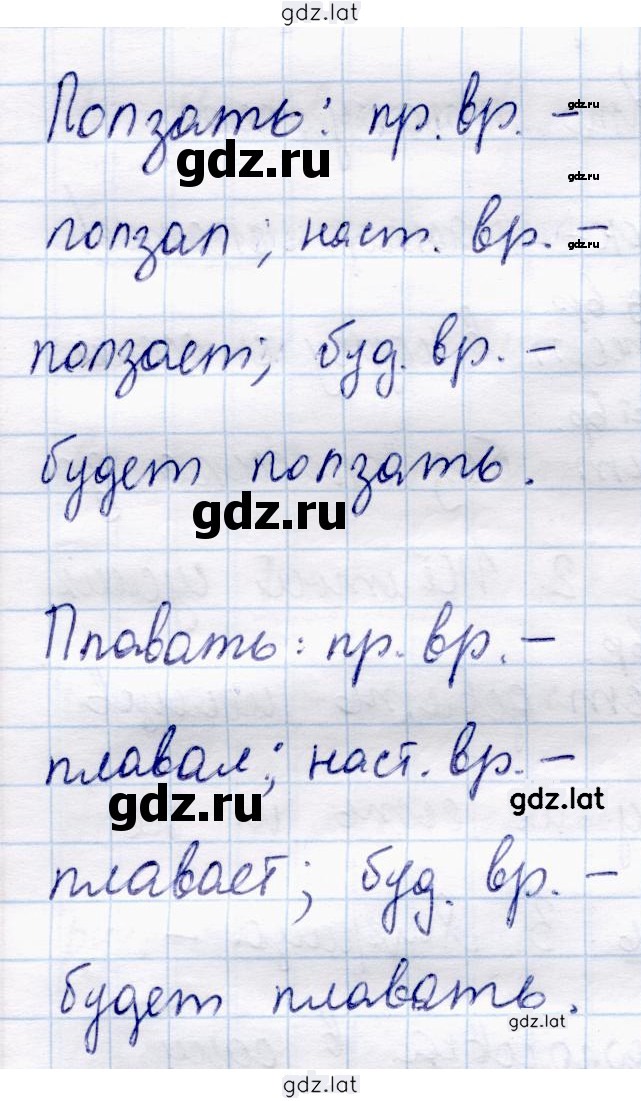 gdz.lat
Ползать: пр. вр. –
gdz.ru
gdz.ru
gdz.ru
ползал; наст. вр. –
gdz.ru
ползает; буд. вр. –
будет ползать.
gdz.ru
Плавать: пр. вр. –
плавал; наст. вр. –
gdz.ru
gdz.lat
плавает; буд. вр. –
будет плавать.
gdz.lat
gdz.lat